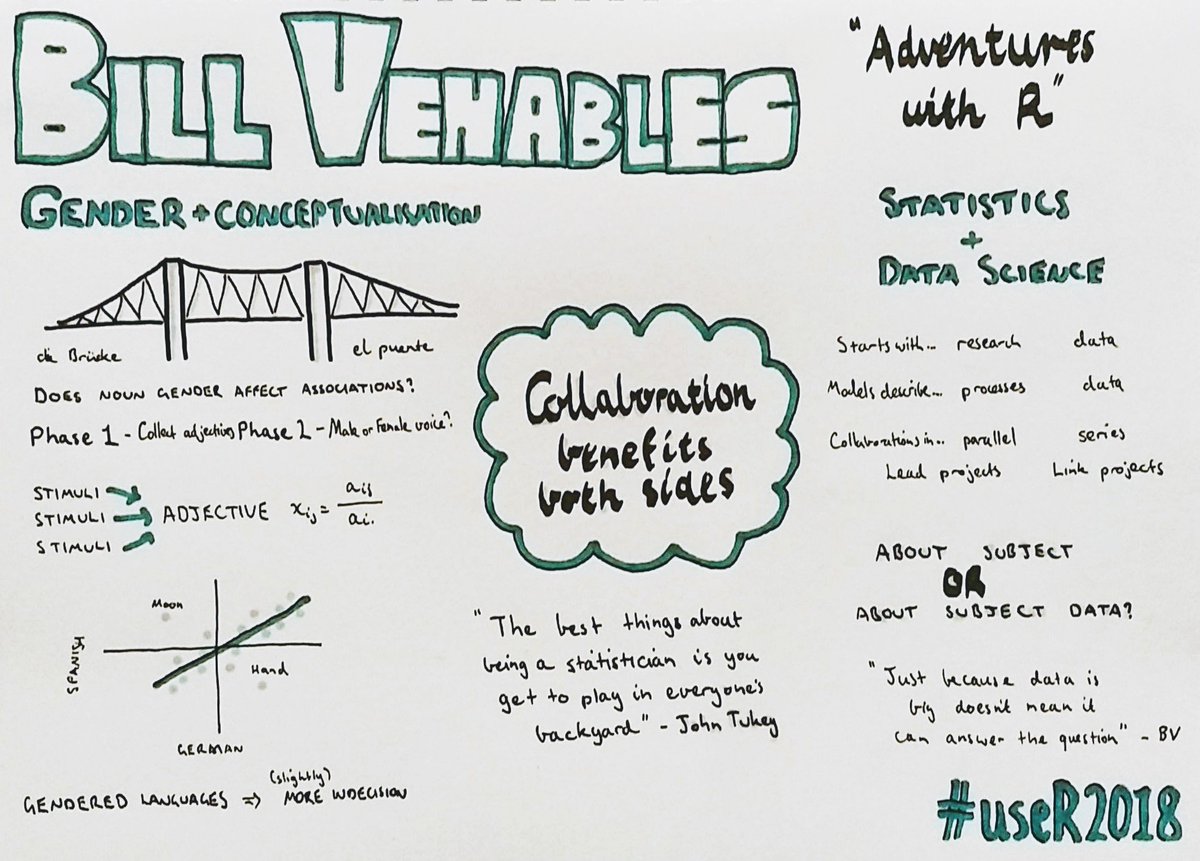 BILL VENABLES
"Adventures
with R"
GENDER + CONCEPTUALISATION
die Brücke
el puente
DOES NOUN GENDER AFFECT ASSOCIATIONS?
Phase 1 - Collect adjectives Phase 2 - Male or Female voice?
STIMULI
STIMULI
STIMULI
ADJECTIVE xij = aij / ai.
Moon
Hand
SPANISH
GERMAN
GENDERED LANGUAGES => (slightly) MORE INDECISION
Collaboration
benefits
both sides
"The best things about
being a statistician is you
get to play in everyone's
backyard" - John Tukey
STATISTICS
+
DATA SCIENCE
Starts with... research data
Models describe... processes data
Collaborations in... parallel series
Lead projects Link projects
ABOUT SUBJECT
OR
ABOUT SUBJECT DATA?
"Just because data is
big doesn't mean it
can answer the question" - BV
#useR2018